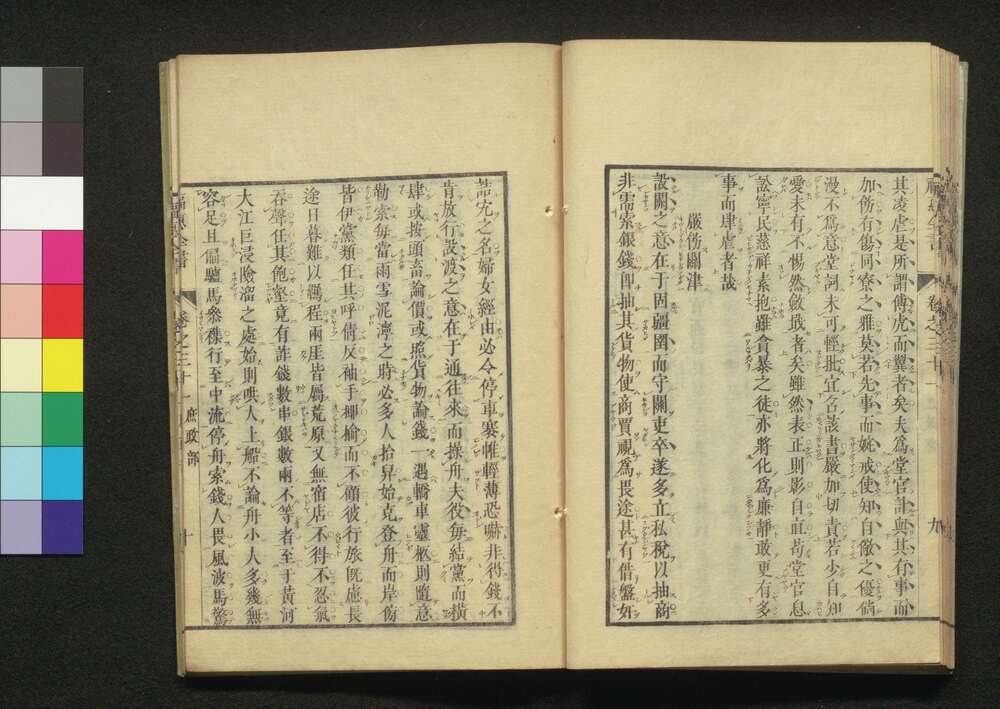 福惠全書 卷之三十一 九
其凌虐是所謂傅虎而翼者矣夫爲堂官計與其有事而
加飭有傷同寮之雅莫若先事而婉戒使知自儆之優倘
漫不爲意堂詞未可輕批宜令該書嚴加切責若少自知
愛未有不惕然斂戢者矣雖然表正則影自直苟堂官息
訟寧民慈祥素抱雖貪暴之徒亦將化爲廉靜敢更有多
事而肆虐者哉
嚴飭關津
設關之意在于固疆圉而守關吏卒遂多立私稅以抽商
非需索銀錢卽抽其貨物使商賈視爲畏途甚有借盤如
詰宄之名婦女經由必令停車褰帷輕薄恐嚇非得錢不
肯放行設渡之意在于通往來而操舟夫役每結黨而橫
肆或按頭畜論價或照貨物論錢一遇轎車靈柩則隨意
勒索每當雨雪泥濘之時必多人拾舁始克登舟而岸傍
皆伊黨類任其呼倩反袖手揶揄而不顧彼行旅旣慮長
途日暮難以羈程兩厓皆屬荒原又無宿店不得不忍氣
吞聲任其飽壑竟有詐錢數串銀數兩不等者至于黃河
大江巨浸險溜之處始則哄人上船不論舟小人多幾無
容足且騾驢馬叅襍行至中流停舟索錢人畏風波馬驚
福惠全書 卷之三十一 庶政部 十